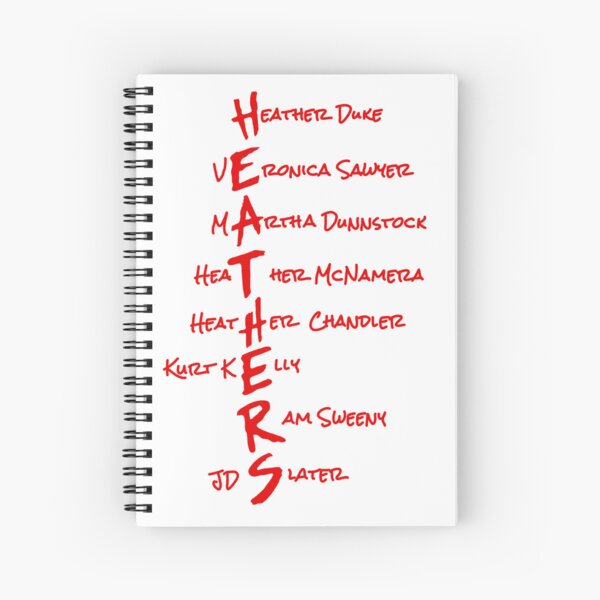 Heather Duke
Veronica Sawyer
Martha Dunnstock
Heather McNamera
Heather Chandler
Kurt Kelly
Ram Sweeny
JD Slater